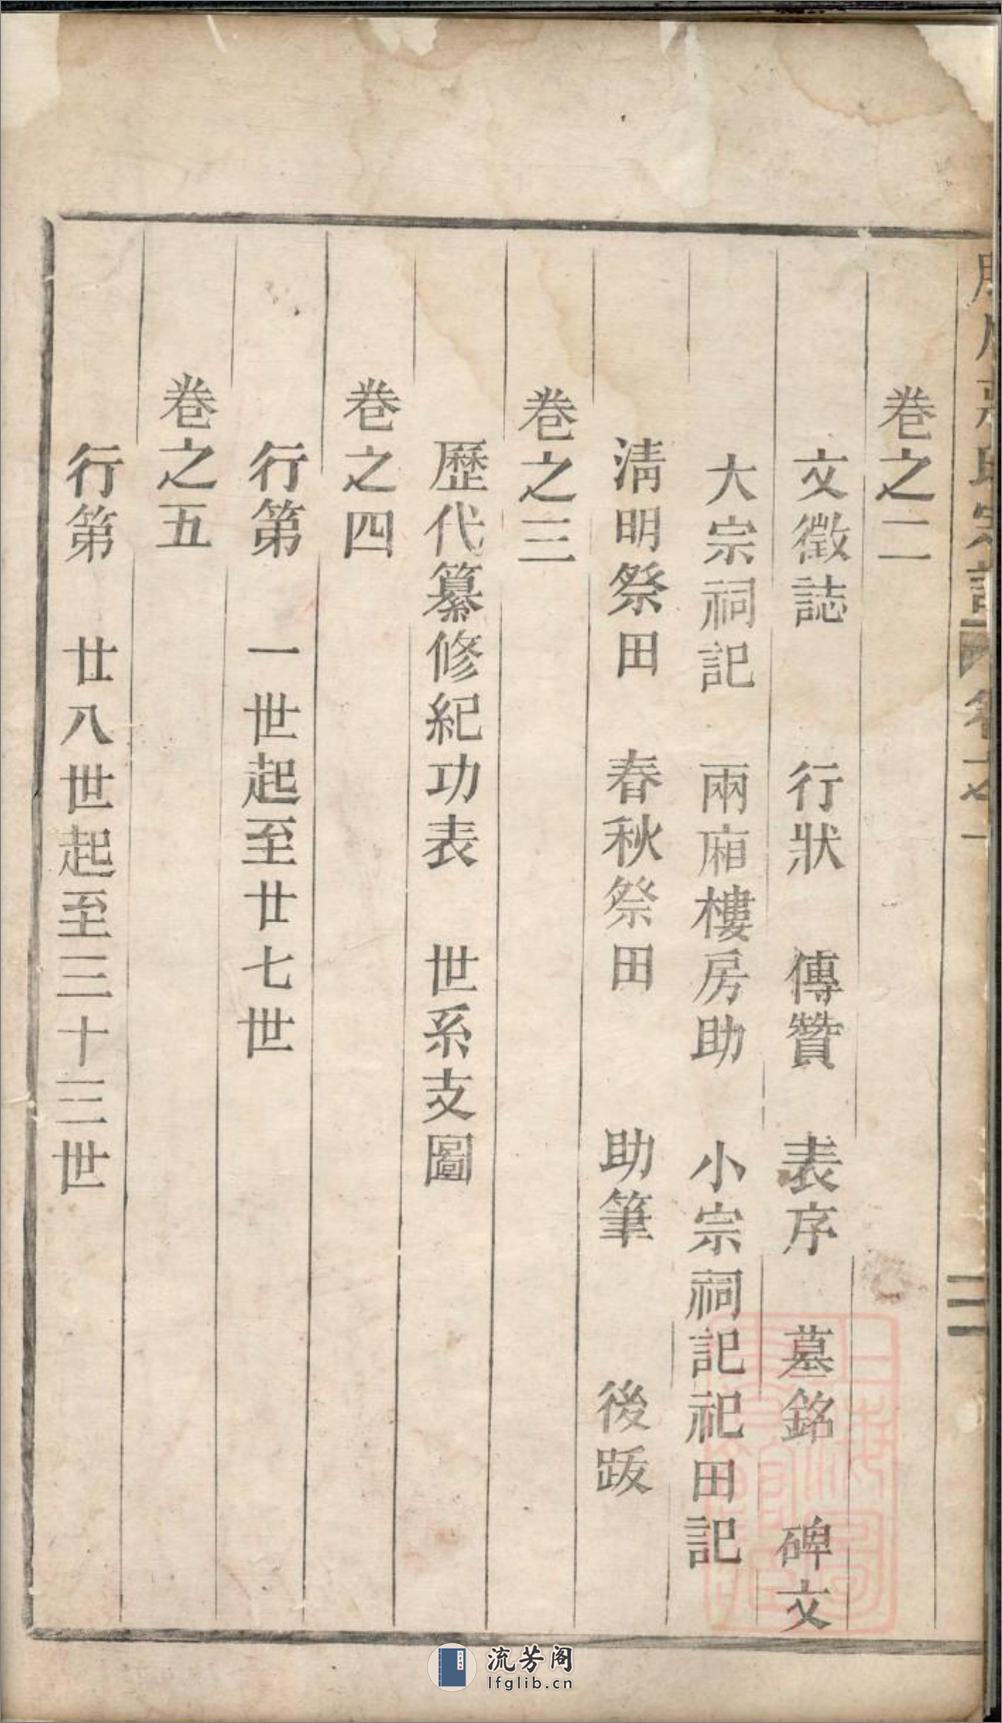 卷之二
文徵誌　行狀　傳贊　表序　墓銘　碑文
大宗祠記　兩廂樓房助　小宗祠記祀田記
淸明祭田　春秋祭田　助筆　後跋
卷之三
歷代纂修紀功表　世系支圖
卷之四
行第　一世起至廿七世
卷之五
行第　廿八世起至三十三世
二
流芳阁
lfglib.cn